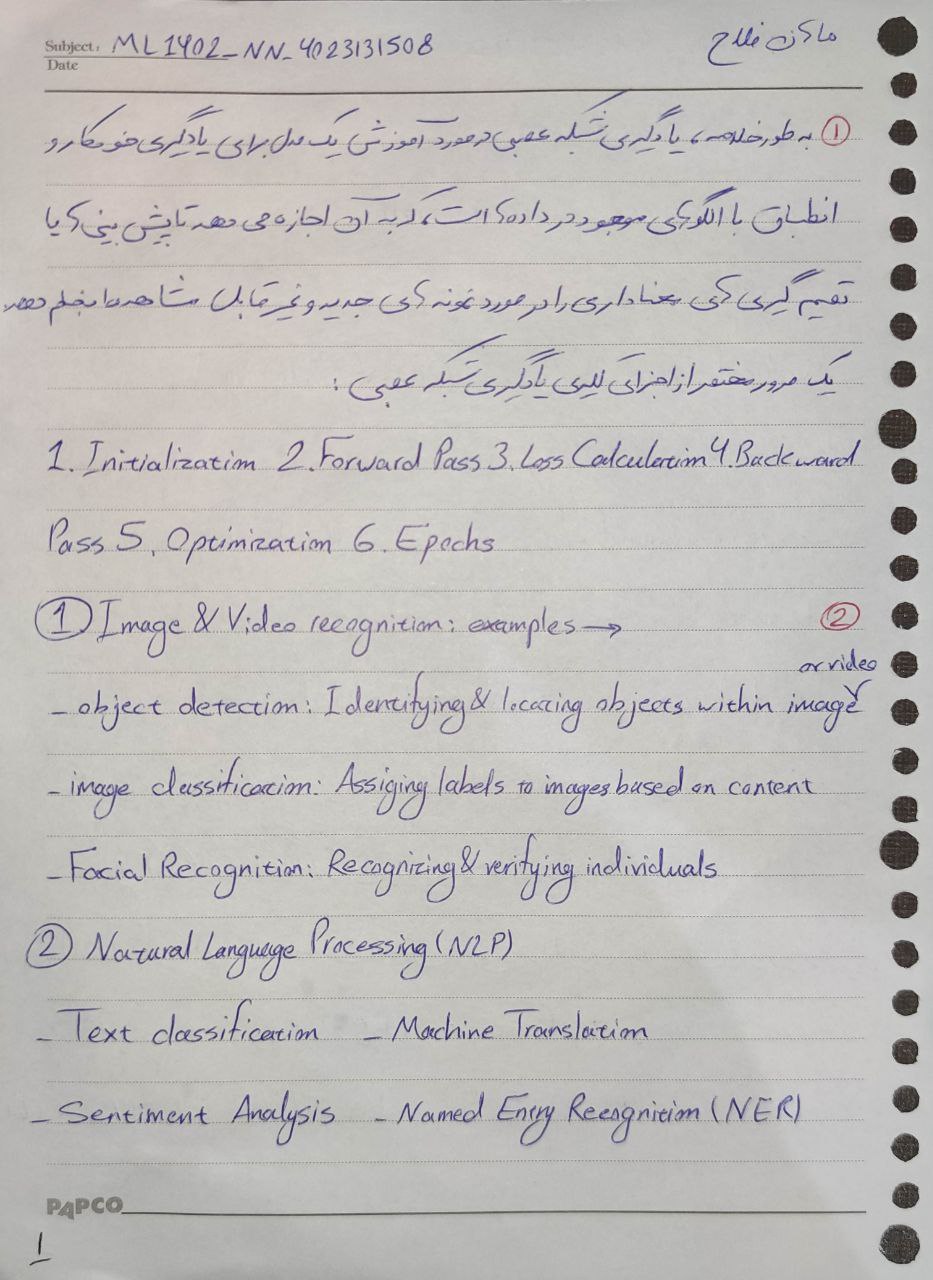 Subject: ML1402_NN_4023131508
ماکان فلاح
Date
① به طور خلاصه، یادگیری شبکه عصبی در مورد آموزش یک مدل برای یادگیری خودکار و
انطباق با الگوهای موجود در داده ها است، که به آن اجازه می دهد تا پیش بینی ها یا
تصمیم گیری های معناداری را در مورد نمونه های جدید و غیر قابل مشاهده انجام دهد.
یک مرور مختصر از اجزای کلیدی یادگیری شبکه عصبی :
1. Initialization 2. Forward Pass 3. Loss Calculation 4. Backward
Pass 5. Optimization 6. Epochs
① Image & Video recognition: examples → ②
or video
- object detection: Identifying & locating objects within image
- image classification: Assiging labels to images based on content
- Facial Recognition: Recognizing & verifying individuals
② Natural Language Processing (NLP)
- Text classification - Machine Translation
- Sentiment Analysis - Named Entry Recognition (NER)
PAPCO
1